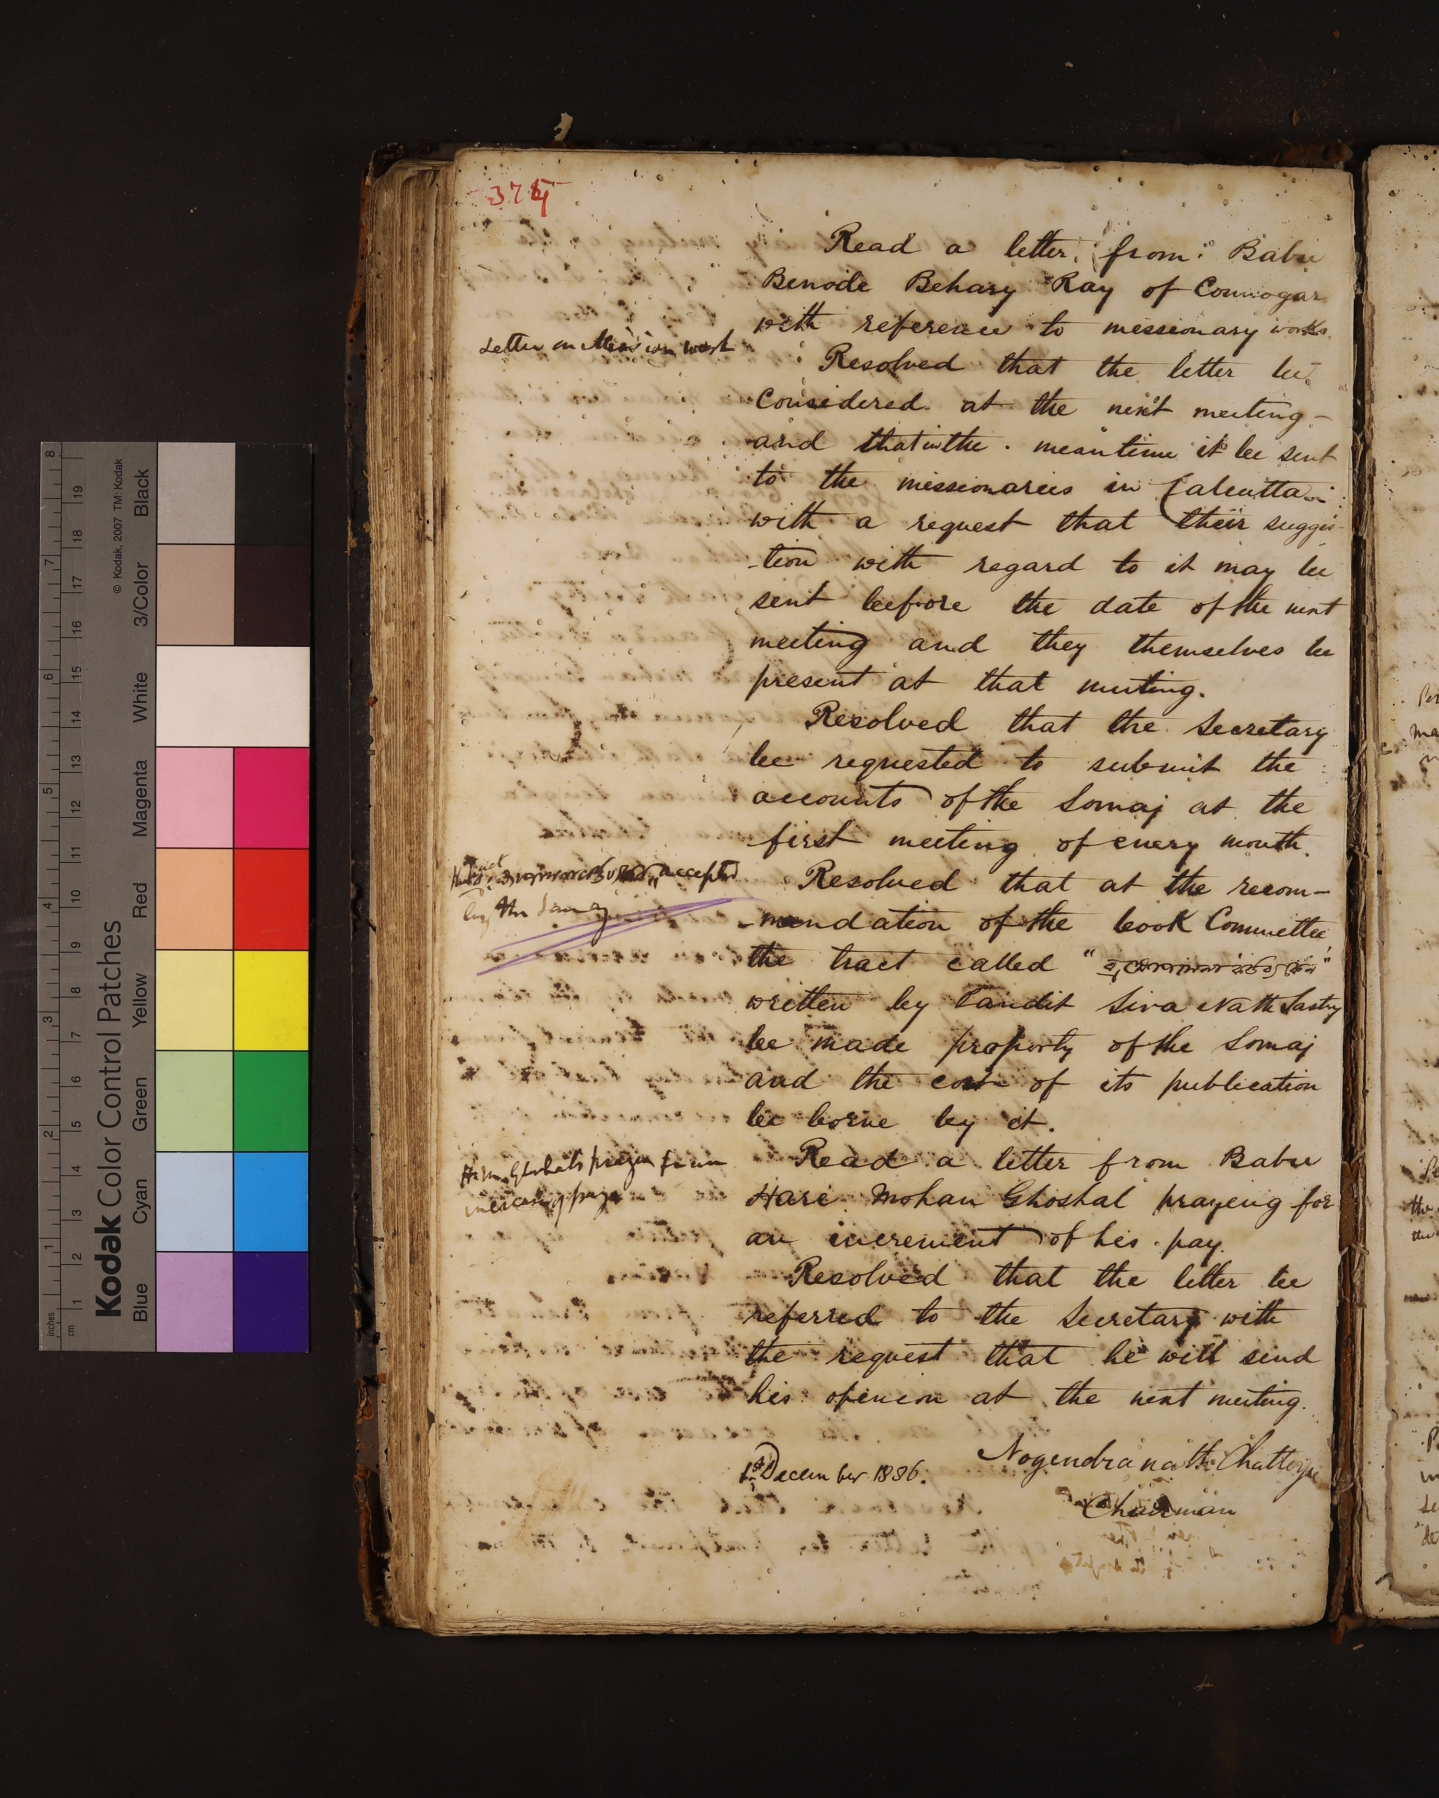 Read a letter from Babu
Benode Behary Ray of Connogar
with reference to missionary works
Letter on Mission work
Resolved that the letter be
Considered at the next meeting
and that in the meantime it be sent
to the missionaries in Calcutta
with a request that their sugges-
tion with regard to it may be
sent before the date of the next
meeting and they themselves be
present at that meeting.
Resolved that the Secretary
be requested to submit the
accounts of the Somaj at the
first meeting of every month.
accepted
by the Somaj
Resolved that at the recom-
mendation of the book Committee
the tract called "
written by Pandit Siva Nath Sastry
be made property of the Somaj
and the cost of its publication
be borne by it.
prayer for
increase of pay
Read a letter from Babu
Hari Mohan Ghoshal praying for
an increment of his pay.
Resolved that the letter be
referred to the Secretary with
the request that he will send
his opinion at the next meeting.
Nogendra nath Chatterjee
1st December 1886.
Chairman
Kodak Color Control Patches
© Kodak, 2007 TM: Kodak
Blue Cyan Green Yellow Red Magenta White 3/Color Black
inches 1 2 3 4 5 6 7 8
cm 1 2 3 4 5 6 7 8 9 10 11 12 13 14 15 16 17 18 19